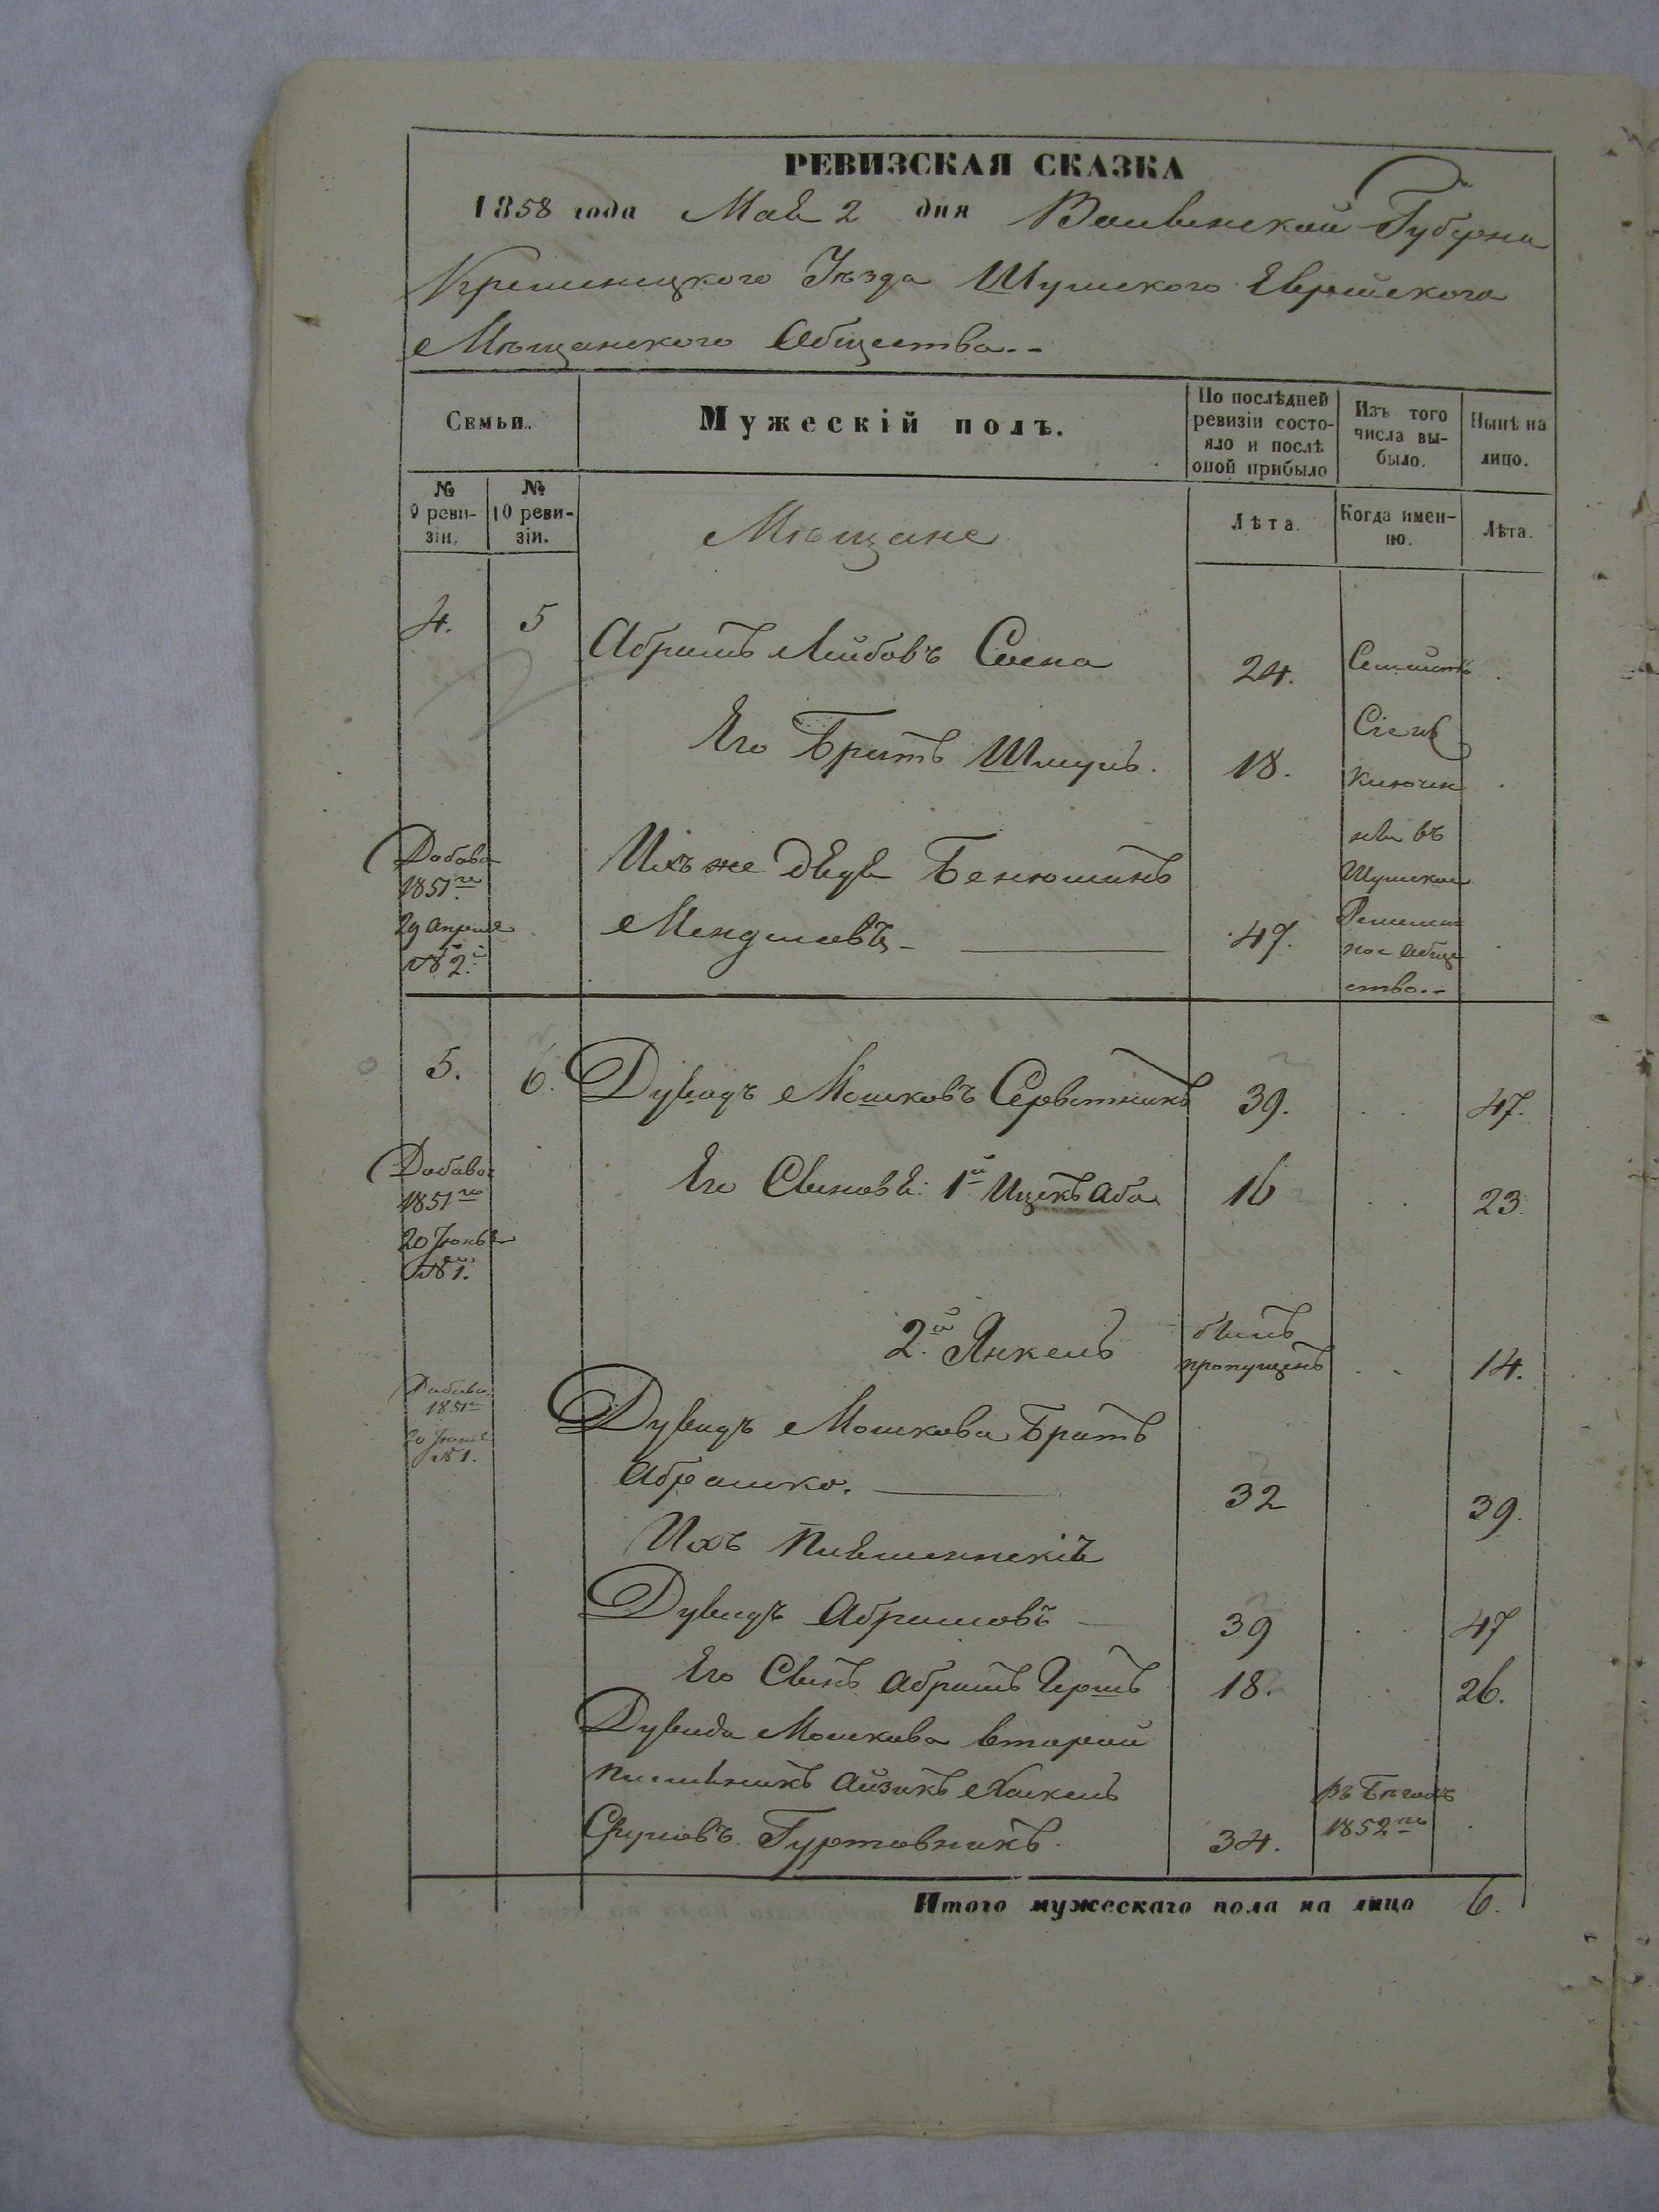 РЕВИЗСКАЯ СКАЗКА
1858 года Мая 2 дня Волынской Губерни
Кременецкого Уѣзда Шумского Еврейского
Мѣщанского Общества..
Семьи.
Мужескій полъ.
По послѣдней
ревизіи состо-
яло и послѣ
оной прибыло
Изъ того
числа вы-
было.
Нынѣ на
лицо.
№
9 реви-
зіи.
№
10 реви-
зіи.
Мѣщане
Лѣта.
Когда имен-
но.
Лѣта.
4. 5 Абрамъ Лейбовъ 24.
Его Братъ Шмуль. 18.
Ихъ же дядя Бенюминъ
Менделевъ 47.
Добавоч
1851го
29 Апреля
№ 2.й
въ
Шумское
ное обще
ство..
5. 6. Дувидъ Мошковъ Серветникъ 39. 47.
Добавоч
1851го
20 Іюня
№ 1.
Его Сыновья: 1й Ицекъ Аба 16 23.
2й Янкель былъ
пропущенъ 14.
Добавоч.
1851го
20 Іюня
№ 1.
Дувидъ Мошкова Братъ
Абрашко. 32 39.
Ихъ
Дувидъ Абрамовъ 39 47
Его Сынъ Абрамъ Гершъ 18. 26.
Дувида Мошкова вторый
племянникъ Айзикъ Хаскель
Сруловъ Гуртовникъ. 34.
Въ Бѣгахъ
1852го
Итого мужескаго пола на лицо 6.